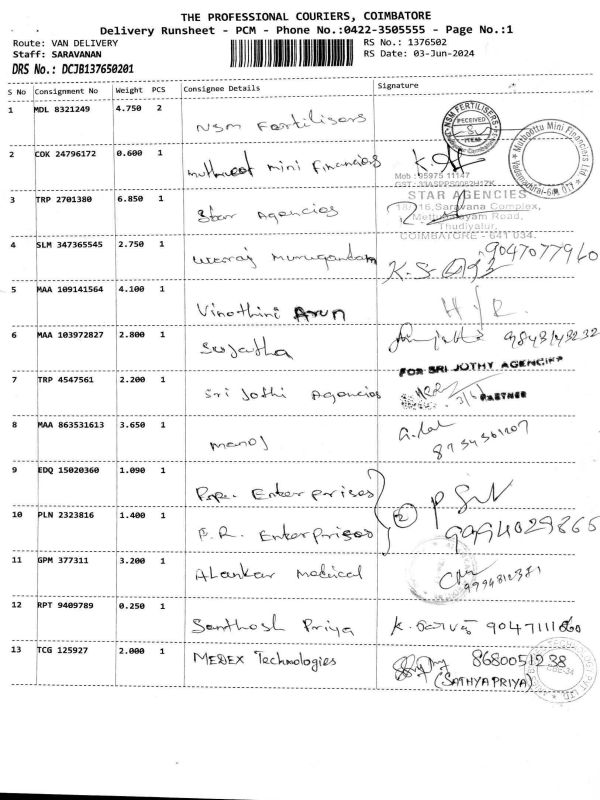 THE PROFESSIONAL COURIERS, COIMBATORE
Delivery Runsheet - PCM - Phone No.:0422-3505555 - Page No.:1
Route: VAN DELIVERY
RS No.: 1376502
Staff: SARAVANAN
RS Date: 03-Jun-2024
DRS No.: DCJB137650201
S No Consignment No Weight PCS Consignee Details Signature
1 MDL 8321249 4.750 2 NSM Fertilisers
NSM FERTILISERS
RECEIVED
2 COK 24796172 0.600 1 Muthoot Mini Financiers
Muthoottu Mini Financiers Ltd
Mob : 95975 11147
3 TRP 2701380 6.850 1 Star Agencies
STAR AGENCIES
Saravana Complex,
Mettupalayam Road,
Thudiyalur,
COIMBATORE - 641 034.
4 SLM 347365545 2.750 1 Murugandam
9047077960
5 MAA 109141564 4.100 1 Vinothini Arun
6 MAA 103972827 2.800 1 Sujatha
7 TRP 4547561 2.200 1 Sri Jothi Agencies
FOR SRI JOTHY AGENCIES
PARTNER
8 MAA 863531613 3.650 1 Manoj
9 EDQ 15020360 1.090 1 Enterprises
10 PLN 2323816 1.400 1 P.R. Enterprises
2
9994029865
11 GPM 377311 3.200 1 Alankar Medical
9994812371
12 RPT 9409789 0.250 1 Santhosh Priya
13 TCG 125927 2.000 1 MEDEX Technologies
8680051238
(SATHYAPRIYA)